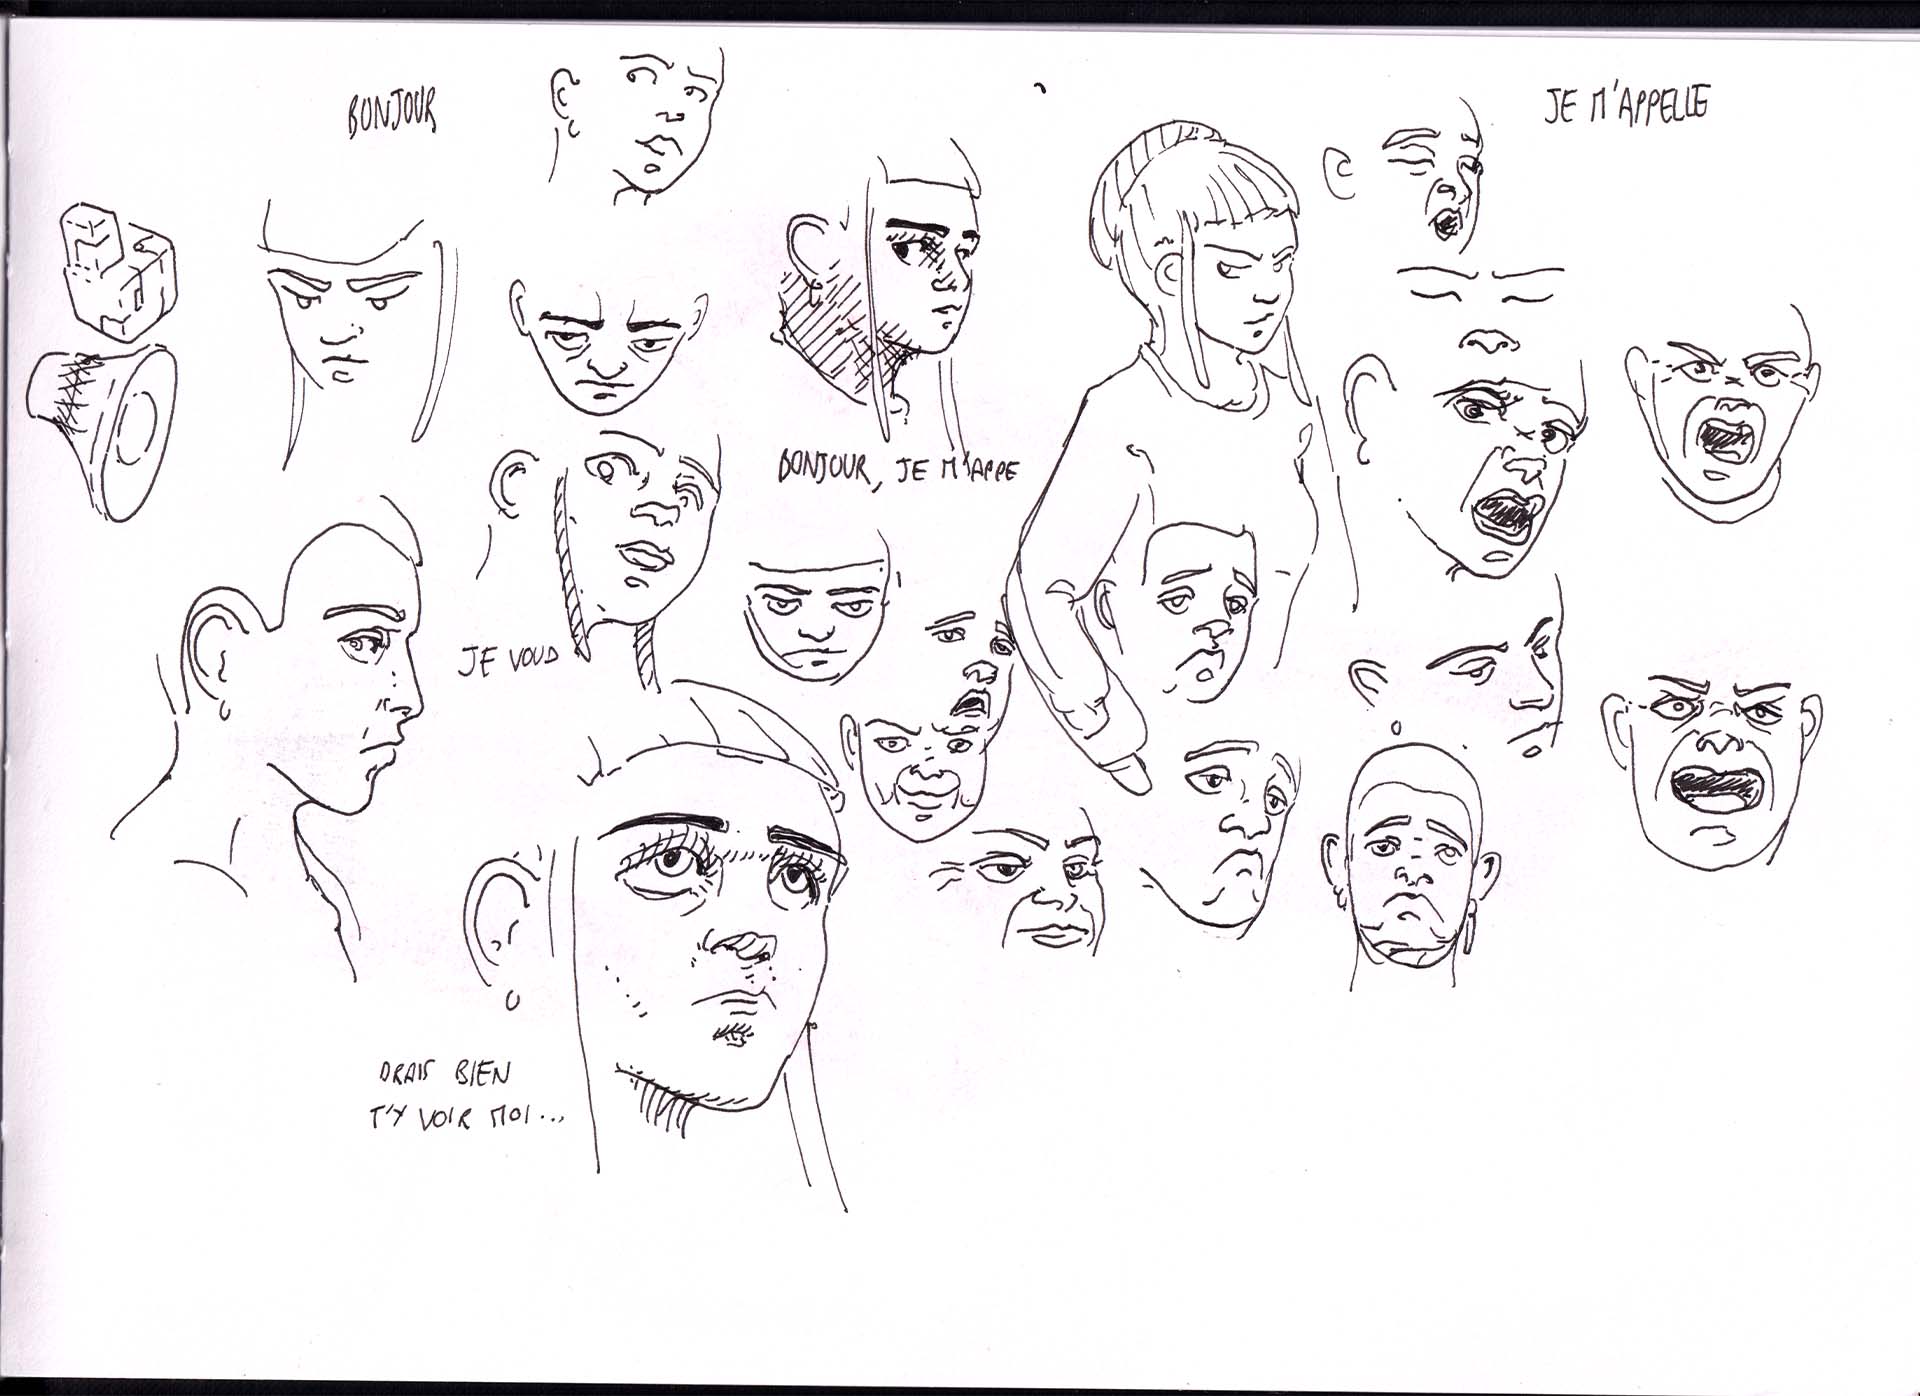 BONJOUR
JE M'APPELLE
BONJOUR, JE M'APPE
JE VOUD
DRAIS BIEN
T'Y VOIR MOI...